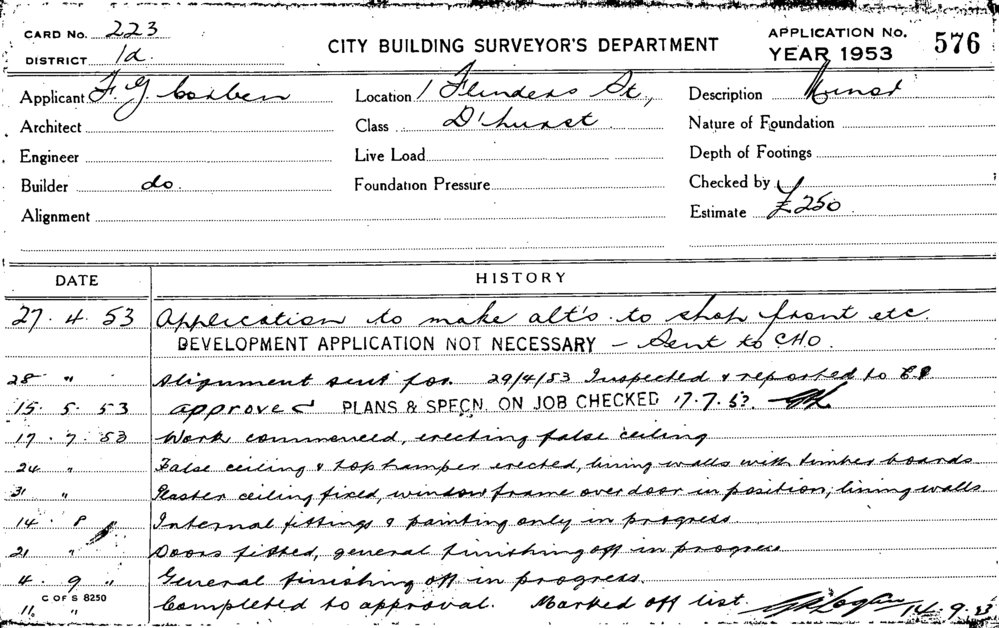 CARD No. 223
DISTRICT 1d.
CITY BUILDING SURVEYOR'S DEPARTMENT
APPLICATION No. 576
YEAR 1953
Applicant F G Corben Location 1 Flinders St, Description Minor
Architect Class D'hurst Nature of Foundation
Engineer Live Load Depth of Footings
Builder do. Foundation Pressure Checked by
Alignment Estimate £250
DATE HISTORY
27. 4. 53 Application to make alt's. to shop front etc.
DEVELOPMENT APPLICATION NOT NECESSARY - Sent to CHO.
28 " Alignment sent for. 29/4/53 Inspected & reported to
15. 5. 53 approved PLANS & SPECN. ON JOB CHECKED 17.7.53
17. 7. 53 Work commenced, erecting false ceiling
24 " False ceiling & top hamper erected, lining walls with timber boards
31 " Plaster ceiling fixed, window frame over door in position, lining walls
14. 8 " Internal fittings & painting only in progress.
21 " Doors fitted, general finishing off in progress
4. 9 " General finishing off in progress.
C OF S 8250
11 " Completed to approval. Marked off list. 14.9.53